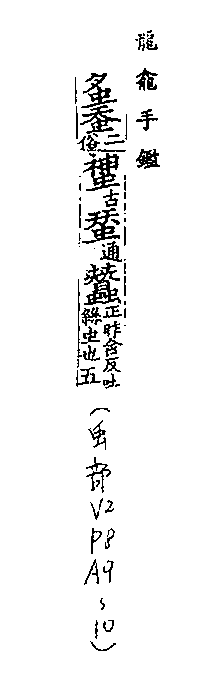 龍龕手鑑
𧊓蚕二俗䗝古蝅通蠶正昨含反吐絲虫也五
(虫部V2
P8
A9
~10)